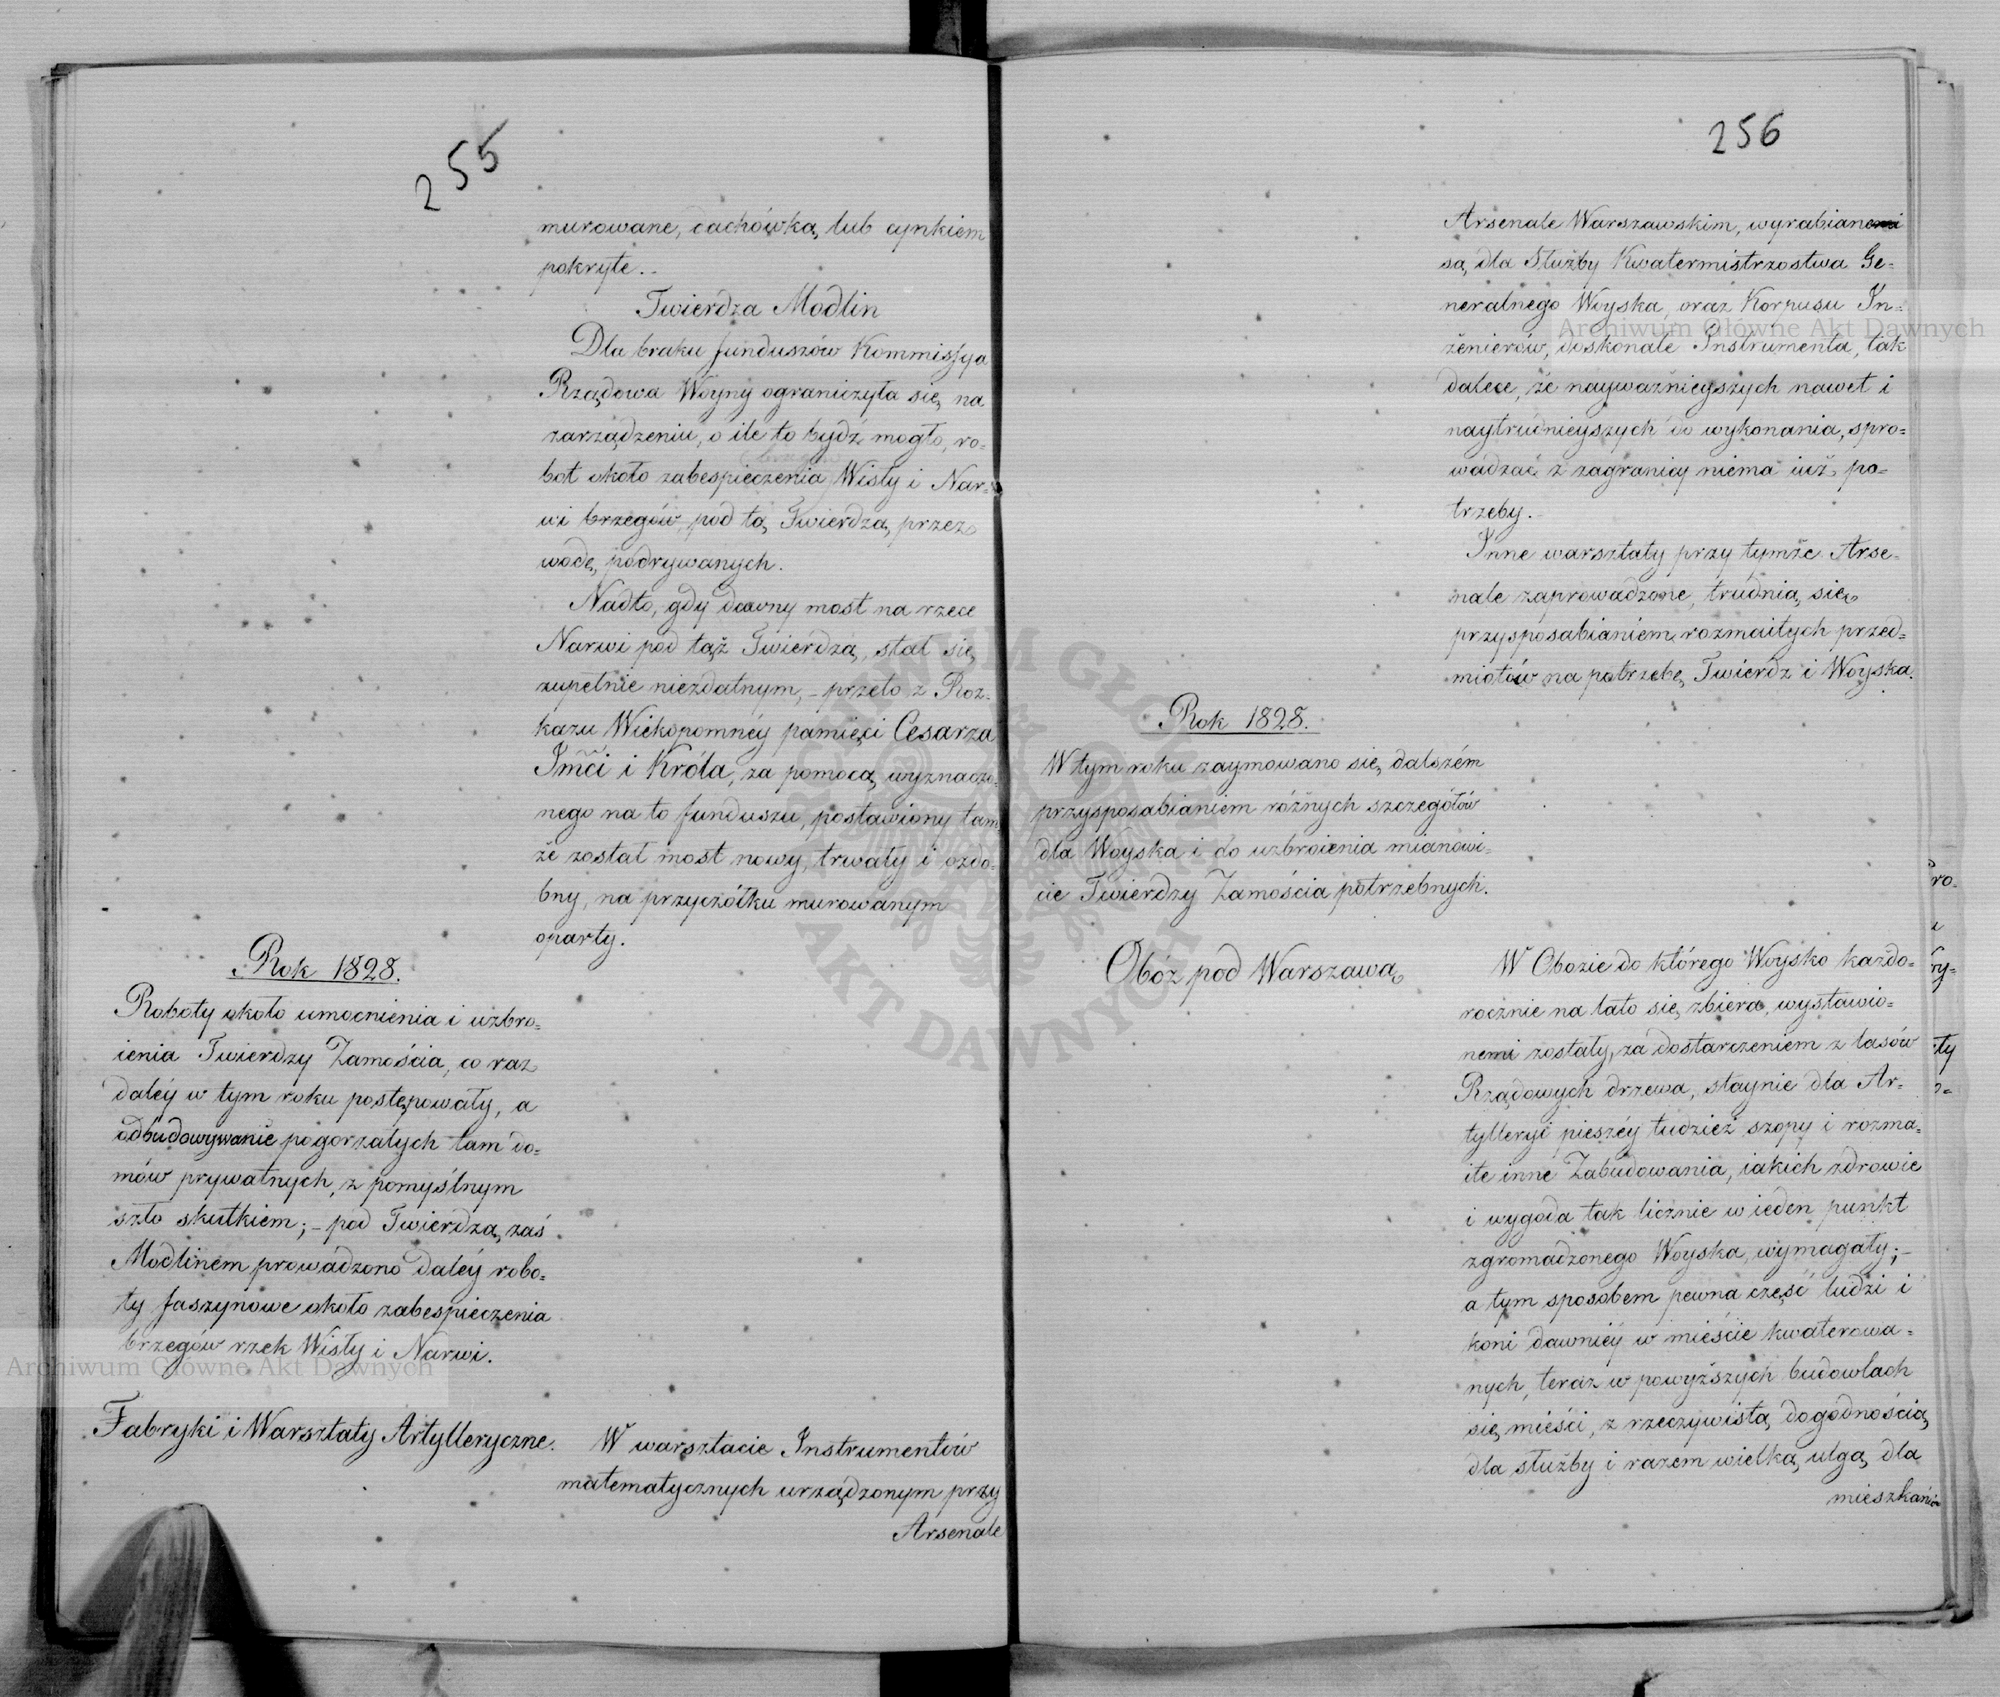 255
murowane, dachówką, lub cynkiem
pokryte..
Twierdza Modlin
Dla braku funduszów Kommissya
Rządowa Woyny ograniczyła się na
zarządzeniu, o ile to bydź mogło, ro-
brzegów
bot około zabespieczenia Wisły i Nar-
wi brzegów, pod tą Twierdzą, przez
wodę, podrywanych.
Nadto, gdy dawny most na rzece
Narwi pod tąż Twierdzą, stał się
zupełnie niezdatnym, - przeto z Roz-
kazu Wiekopomnéy pamięci Cesarza
Jmći i Króla, za pomocą wyznaczo-
nego na to funduszu, postawiony tam
że został most nowy, trwały i ozdo-
bny, na przyczółku murowanym
oparty.
Rok 1828.
Roboty około umocnienia i uzbro-
ienia Twierdzy Zamościa, co raz
daléy w tym roku postępowały, a
odbudowywanie pogorzałych tam do-
mów prywatnych, z pomyślnym
szło skutkiem; - pod Twierdzą zaś
Modlinem prowadzono daléy robo-
ty faszynowe około zabespieczenia
brzegów rzek Wisły i Narwi.
Fabryki i Warsztaty Artylleryczne.
W warsztacie Instrumentów
matematycznych urządzonym przy
Arsenale
256
Arsenale Warszawskim, wyrabianemi
są, dla Służby Kwatermistrzostwa Ge-
neralnego Woyska, oraz Korpusu In-
żenierów, doskonałe Instrumenta, tak
dalece, że nayważnieyszych nawet i
naytrudnieyszych do wykonania, spro-
wadzać z zagranicy niema iuż po-
trzeby.
Inne warsztaty przy tymże Arse-
nale zaprowadzone, trudnią się
przysposabianiem rozmaitych przed-
miotów na potrzebę Twierdz i Woyska.
Rok 1828.
W tym roku zaymowano się dalszém
przysposabianiem różnych szczegółów
dla Woyska i do uzbroienia mianowi-
cie Twierdzy Zamościa potrzebnych.
Obóz pod Warszawą
W Obozie do którego Woysko każdo-
rocznie na lato się zbiera, wystawio-
nemi zostały, za dostarczeniem z lasów
Rządowych drzewa, staynie dla Ar-
tylleryi pieszéy tudzież szopy i rozma-
ite inne Zabudowania, iakich zdrowie
i wygoda tak licznie w ieden punkt
zgromadzonego Woyska, wymagały; -
a tym sposobem pewna część ludzi i
koni dawniéy w mieście kwaterowa-
nych, teraz w powyższych budowlach
się mieści, z rzeczywistą dogodnością
dla służby i razem wielką ulgą dla
mieszkańców
Archiwum Główne Akt Dawnych
Archiwum Główne Akt Dawnych
ARCHIWUM GŁÓWNE AKT DAWNYCH